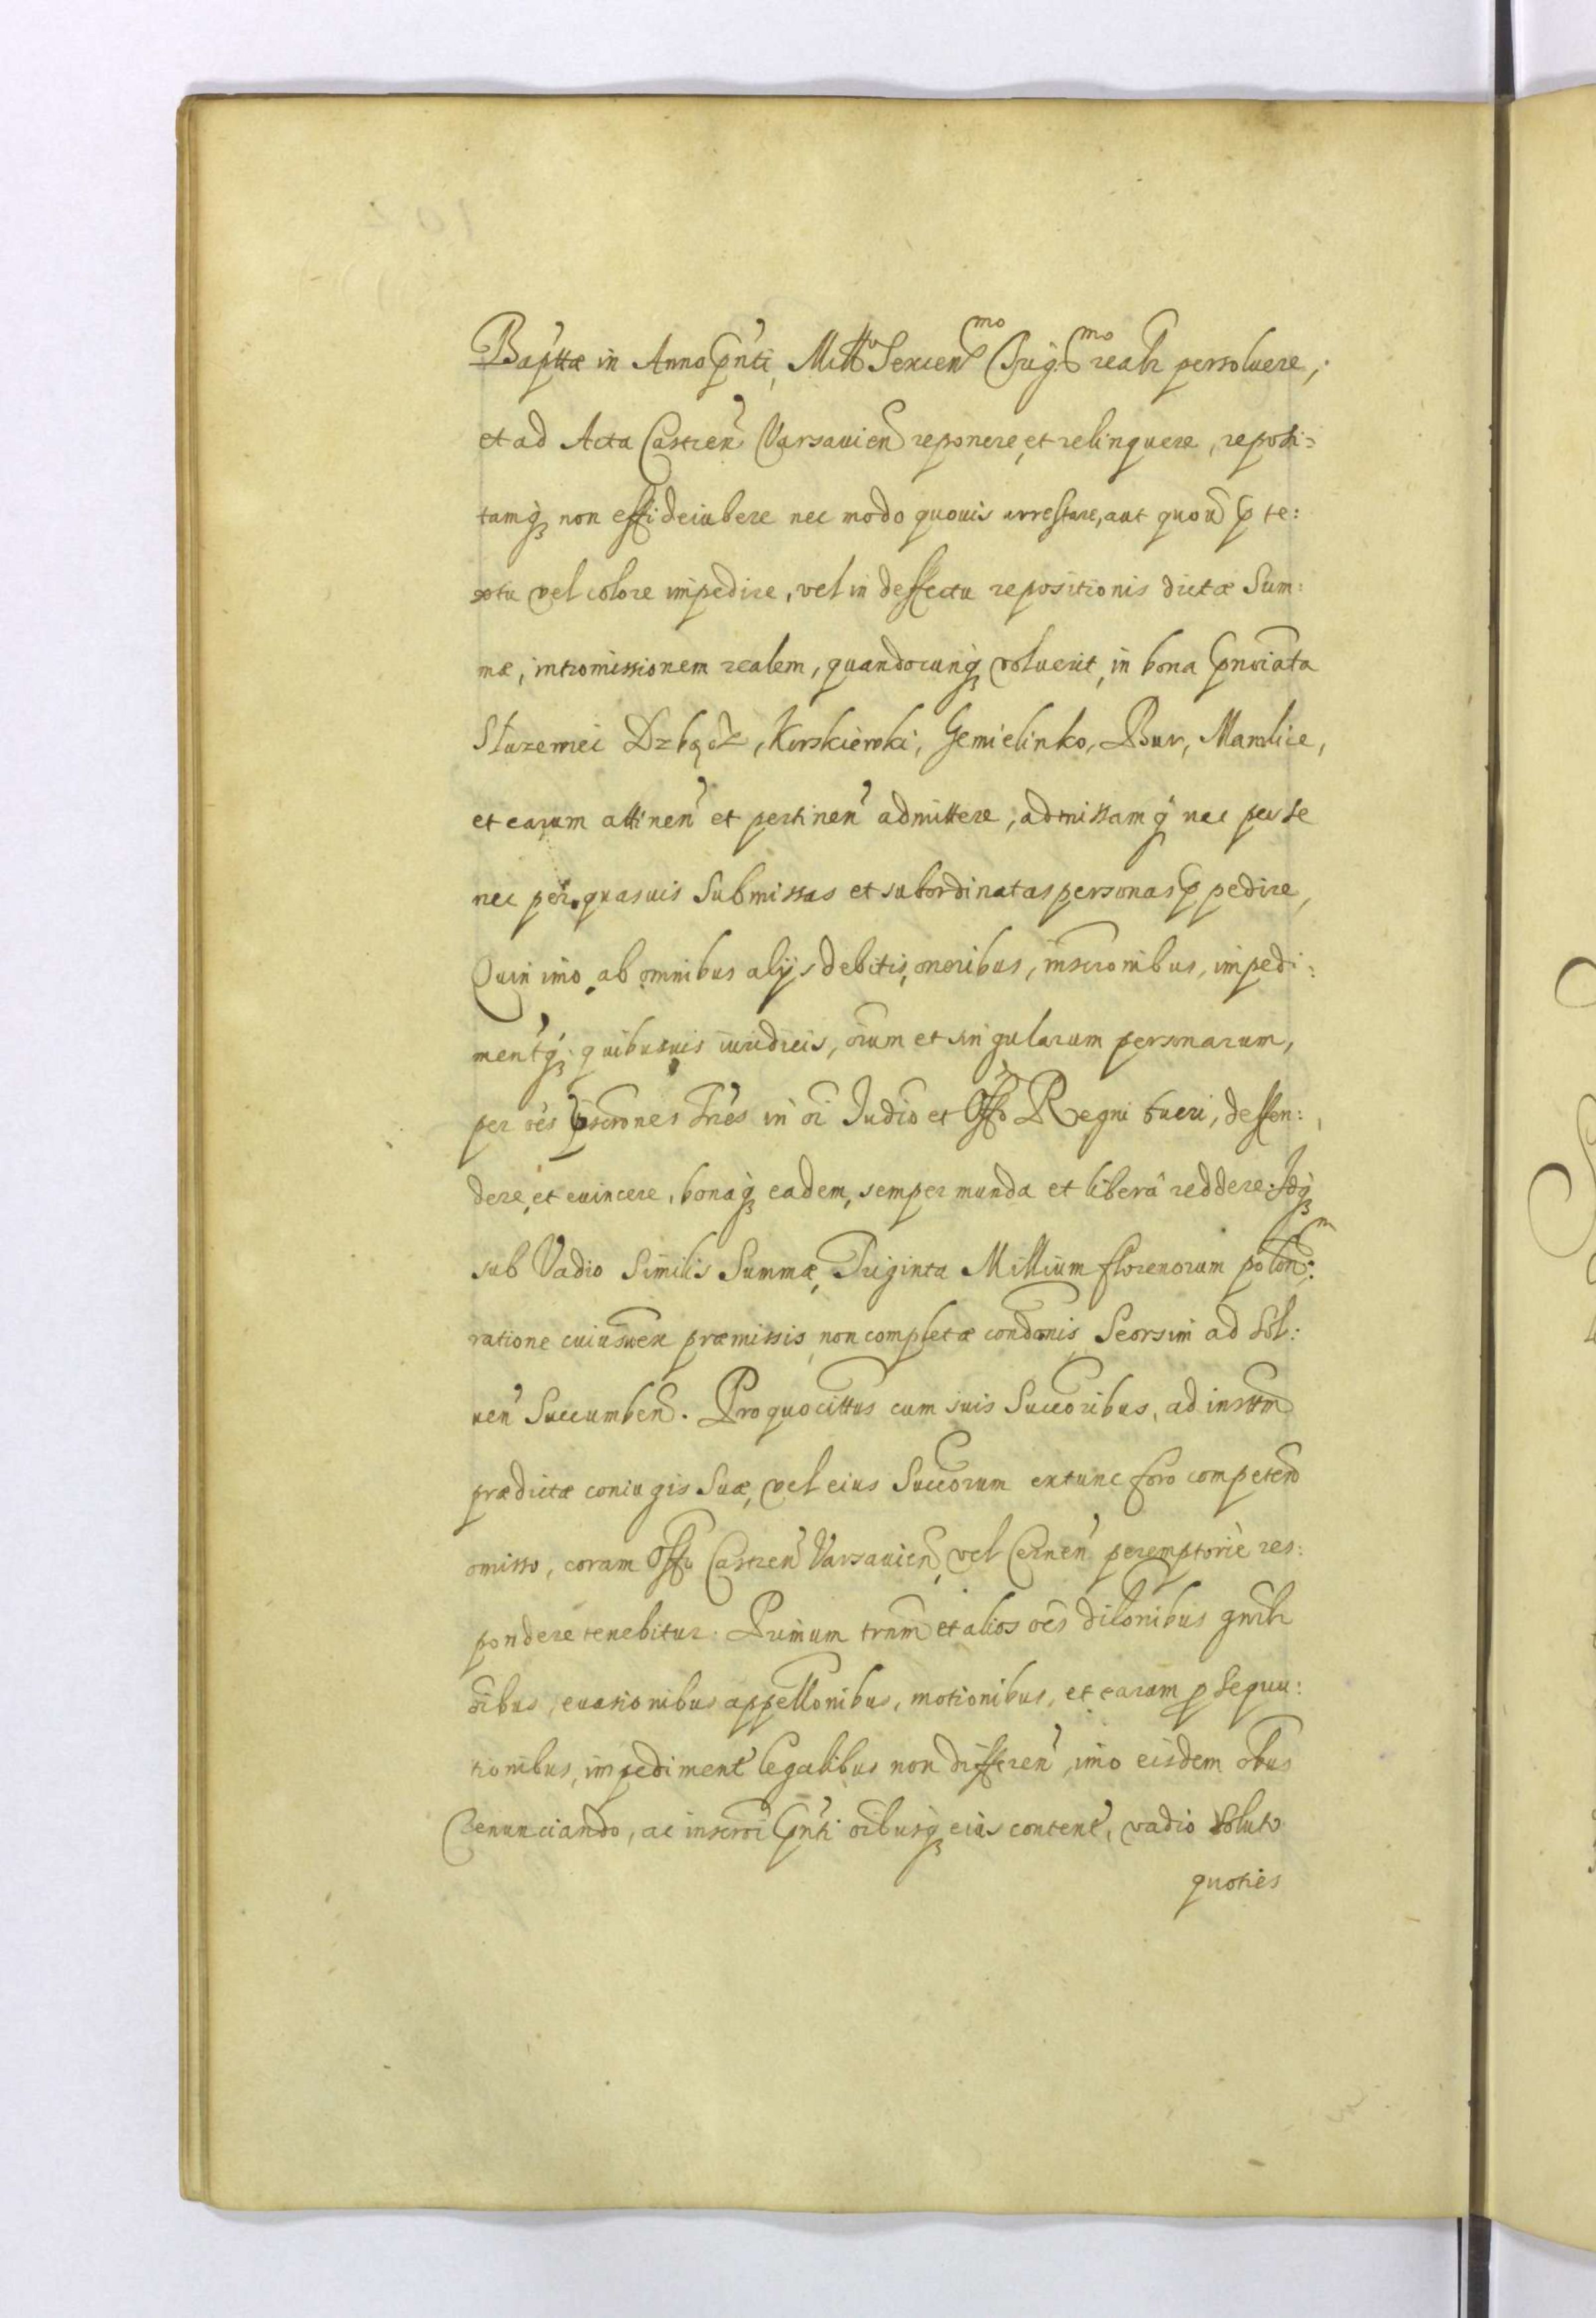 Bapttæ in Anno pñti, Millmo Sexcenmo Trigmo realr persoluere,
et ad Acta Castren Varsauien reponere, et relinquere, reposi=
tamq non effideiubere nec modo quouis arrestare, aut quou p te:
xtu vel colore impedire, vel in deffectu repositionis dictæ Sum:
mæ, intromissionem realem, quandocunq voluerit, in bona
Dzbądz, Gemielinko, Bur,
et earum attinen et pertinen admittere, admissamq nec per se
nec per quasuis Submissas et subordinatas personas p pedire,
Quin imo ab omnibus alijs debitis, oneribus, inscronibus, impedi:
mentq quibusuis iuridicis, oium et singularum personarum,
per oes pscrones trēs in oi Judio et Offo Regni tueri, deffen:
dere, et euincere, bonaq eadem, semper munda et libera reddere. Idq
sub Vadio Similis Summæ, Triginta Millium florenorum polon:
ratione cuiusuex præmissis, non completæ condonis Seorsim ad Sol:
uen Succumben. Pro quo cittus cum suis Succoribus, ad insttm
prædictæ coniugis Suæ, vel eius Succorum extunc foro competen
omisso, coram Offo Castren Varsauien, vel Cernen peremptoriè res:
pondere tenebitur. Primum trnm et alios oēs dilonibus gnrlr
oibus, euasionibus appellonibus, motionibus, et earum p sequu:
tionibus, impediment legalibus non differen, imo eisdem obus
Renunciando, ac inscroi pnti oibusq eius content, vadio soluto
quoties